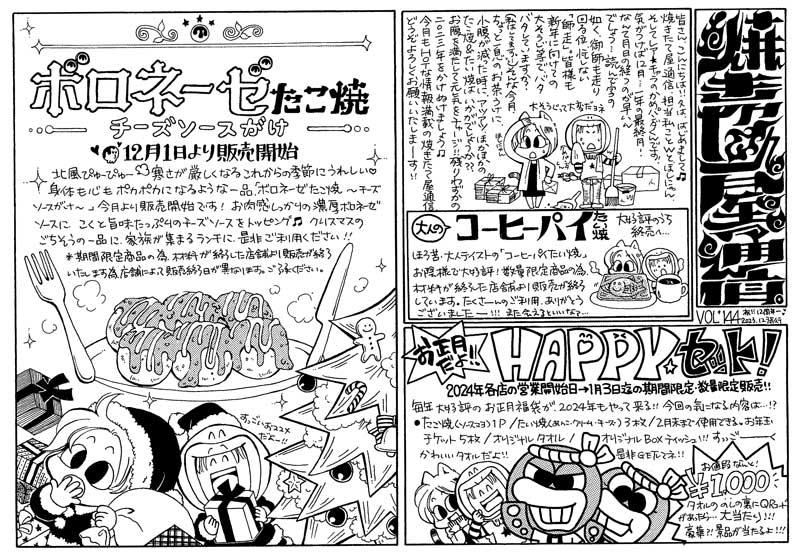 焼きたて屋通信
VOL.144
皆さん、こんにちは!!又は、はじめまして♪
焼きたて屋通信、担当ねこやんとほしにゃん
そしてレア★キャラのかめバタンです!!
気がつけば12月…1年の最終月!
なんて月日の経つのが早いん
でしょう!読んで字の
如く、御師も走り
回る位忙しい
「師走」。皆様も
新年に向けての
大そうじ等でバタ
バタしていますか?
ちょっと一息のお茶うけに、
小腹が減った時に、アツアツ!ほかほかの
たこ焼&たい焼はいかがでしょうか??
お腹を満たして元気をチャージ!!残りわずかの
二〇二三年をかけぬけましょう♪
今月もHOTな情報満載の焼きたて屋通信
どうぞよろしくお願いいたしまーす!!
大そうじって大変だヨネ
ボロネーゼたこ焼
チーズソースがけ
12月1日より販売開始
北風ぴゅーぴゅー 寒さが厳しくなるこれからの季節にうれしい♡
身体も心もポカポカになるような一品「ボロネーゼたこ焼 〜チーズ
ソースがけ〜」今月より販売開始です!お肉感しっかりの濃厚ボロネーゼ
ソースに、こくと旨味たっぷりのチーズソースをトッピング♫ クリスマスの
ごちそうの一品に、家族が集まるランチに、是非ご利用ください!!
*期間限定商品の為、材料が終了した店舗より販売が終了
いたします為店舗によって販売終了日が異なります。ご了承ください。
すっごいオススメだよー!!
大人の
コーヒーパイたい焼
大好評のうち
終売へ…
ほろ苦・大人テイストの「コーヒーパイたい焼」
お陰様で大好評!数量限定商品の為、
材料が終了した店舗より販売が終了
しています。たくさーんのご利用、ありがとう
ございましたー!!! また会えるといいな?…
お正月だよ!!
HAPPY★セット!
2024年各店の営業開始日→1月3日迄の期間限定・数量限定販売!!
毎年大好評のお正月福袋が、2024年もやって来る!! 今回の気になる内容は…!?
●たこ焼(ソースマヨ)1P/たい焼(あんこ・クリーム・チーズ)3本/2月末まで使用できる。お年玉
チケット5枚/オリジナルタオル/オリジナルBOXティッシュ!!! すっごーー
かわいいタオルだよ!!
是非GETしてネ!!
お値段なんと!
¥1,000
タオルののしの裏にQRコード
があったら… 大当たり!!!
豪華?!景品が当たるよ!!!